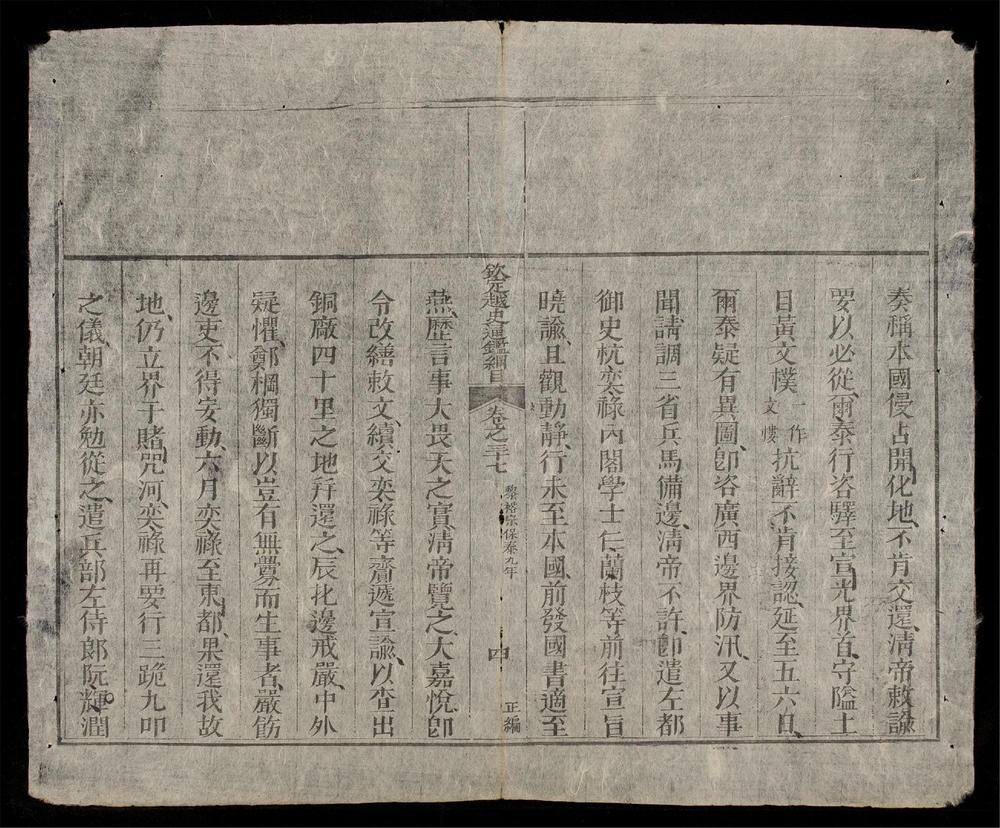 奏稱本國侵占開化地不肯交還清帝敕諭
要以必從爾泰行咨驛至宣光界首守隘土
目黃文樸一作文㦨抗辭不肯接認延至五六日
爾泰疑有異圖即咨廣西邊界防汛又以事
聞請調三省兵馬備邊清帝不許即遣左都
御史杭奕祿內閣學士任蘭枝等前往宣旨
曉諭且觀動靜行未至本國前發國書適至
欽定越史通鑑綱目 卷之三十七 黎裕宗保泰九年 四 正編
燕歷言事大畏天之實清帝覽之大嘉悅即
令改繕敕文續交奕祿等齎遞宣諭以查出
銅廠四十里之地并還之辰北邊戒嚴中外
疑懼鄭棡獨斷以豈有無釁而生事者嚴飭
邊吏不得妄動六月奕祿至東都果還我故
地仍立界于賭咒河奕祿再要行三跪九叩
之儀朝廷亦勉從之遣兵部左侍郎阮輝潤